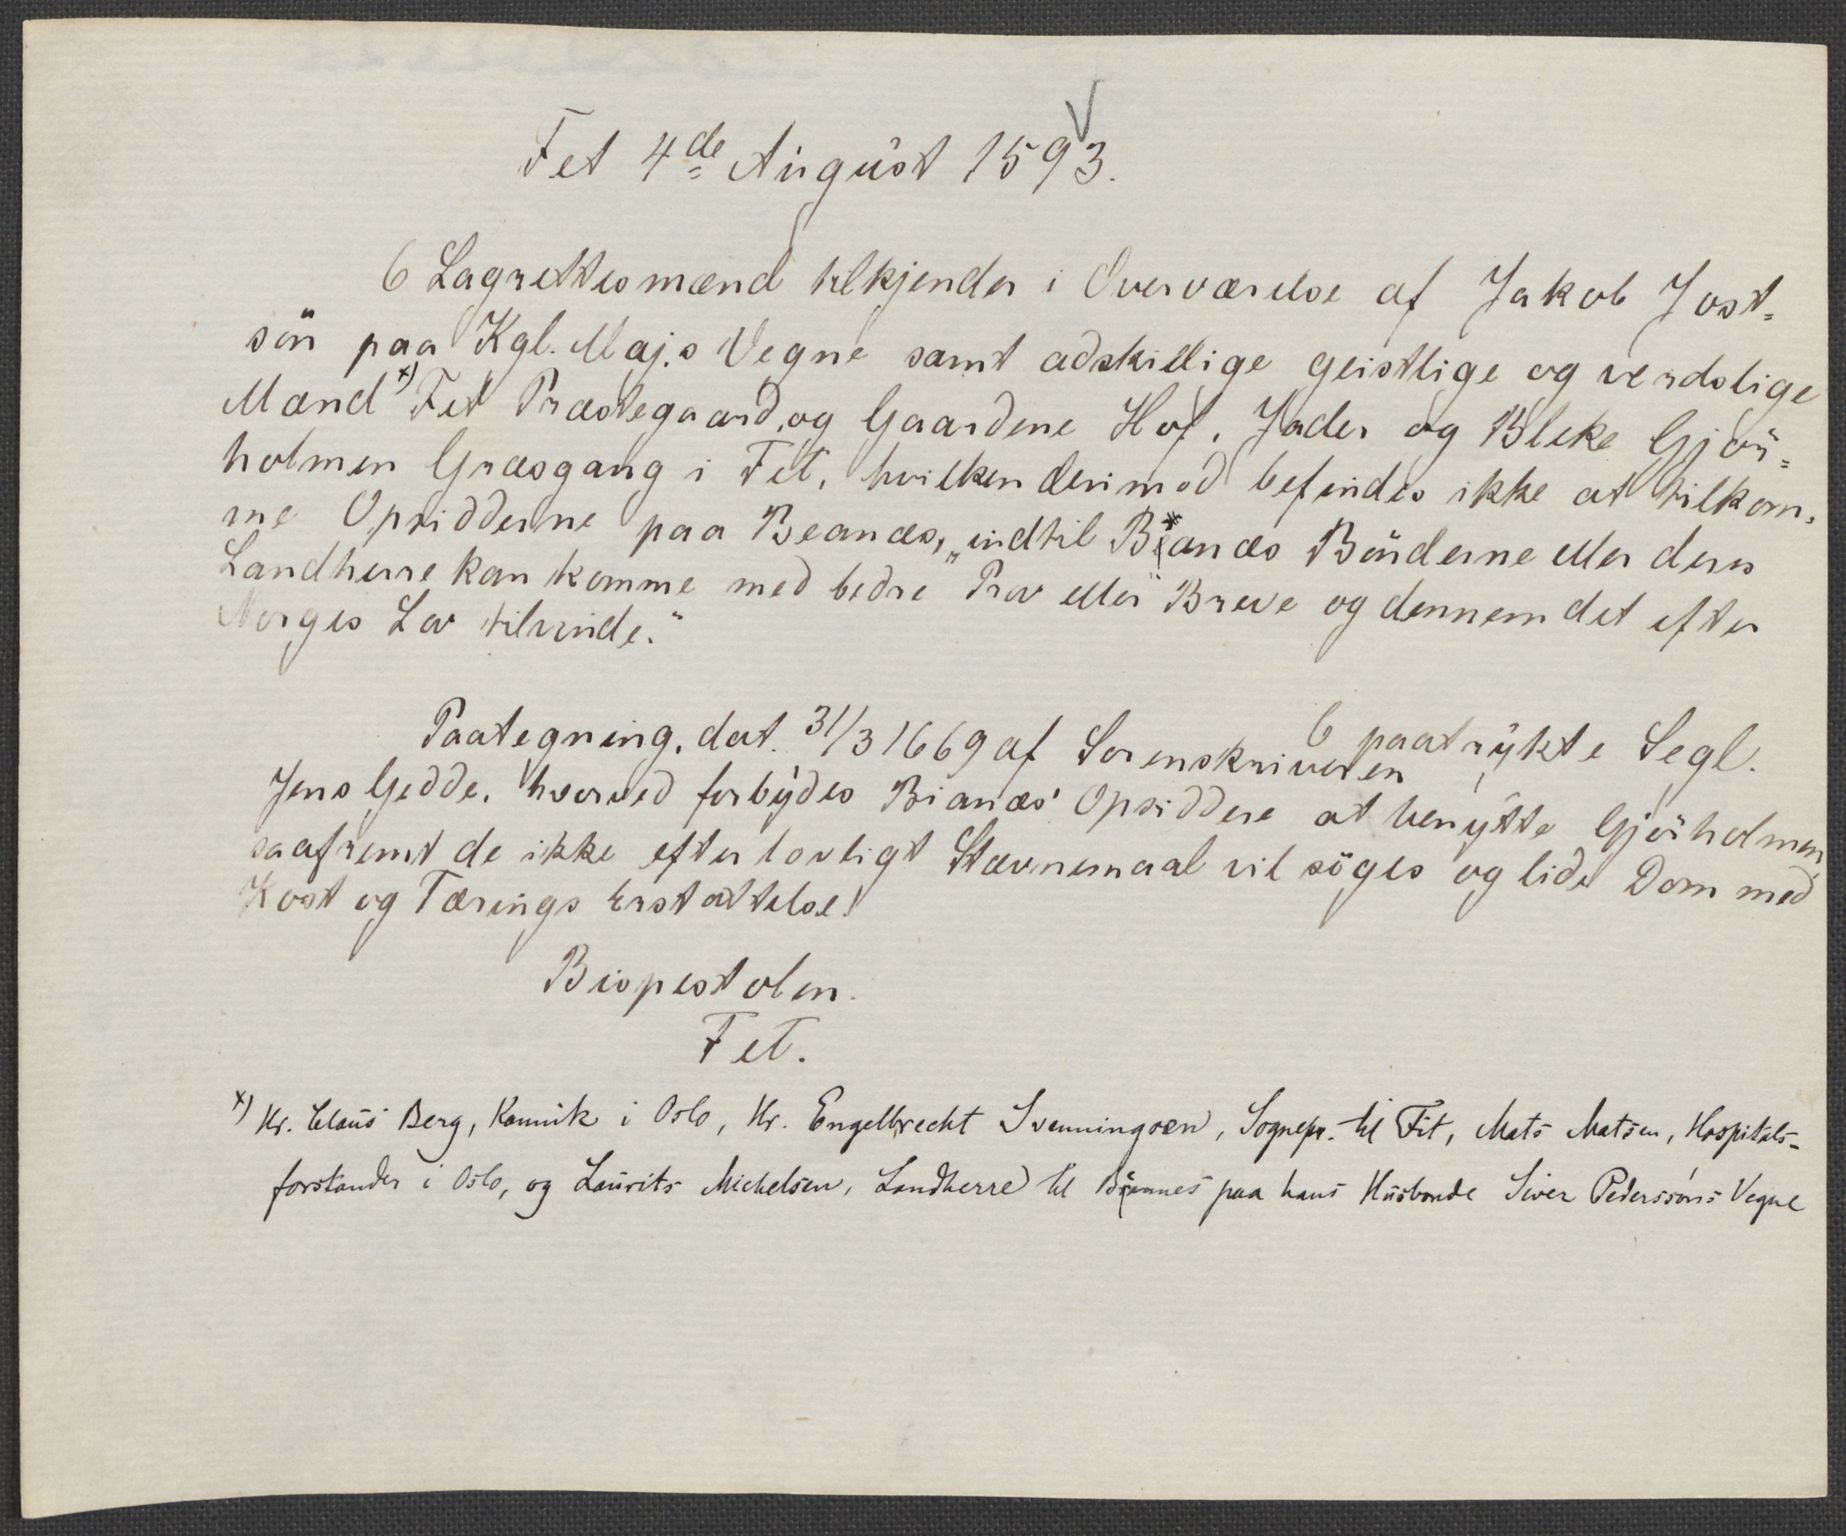 Fet 4de August 1593.
6 Lagrettesmænd tilkjender i Overværelse af Jakob Jost-
sön paa Kgl. Maj.s Vegne samt adskillige geistlige og verdslige
Mænd x) Fet Præstegaard, og Gaardene Hof, Jader og Bleke Gjör=
holmen Græsgang i Fet, hvilken derimod befindes ikke at tilkom-
me Opsidderne paa Beanæs, „indtil Bianæs Bönderne eller deres
Landherre kan komme med bedre Prov eller Breve og dennem det efter
Norges Lov tilvinde.“
6 paatrykte Segl.
Paategning, dat. 31/3 1669 af Sorenskriveren
Jens Gedde, hvorved forbydes Bianæs Opsiddere at benytte Gjörholmen,
saafremt de ikke efter lovligt Stævnemaal vil söges og lide Dom med
Kost og Tærings Erstattelse.
Bispestolen.
Fet.
x) Hr. Claus Berg, Kannik i Oslo, Hr. Engelbrecht Svenningsen, Sognepr. til Fet, Mats Matsen, Hospitals-
forstander i Oslo, og Laurits Michelsen, Landherre til Biannes paa hans Husbonde Siver Pederssöns Vegne